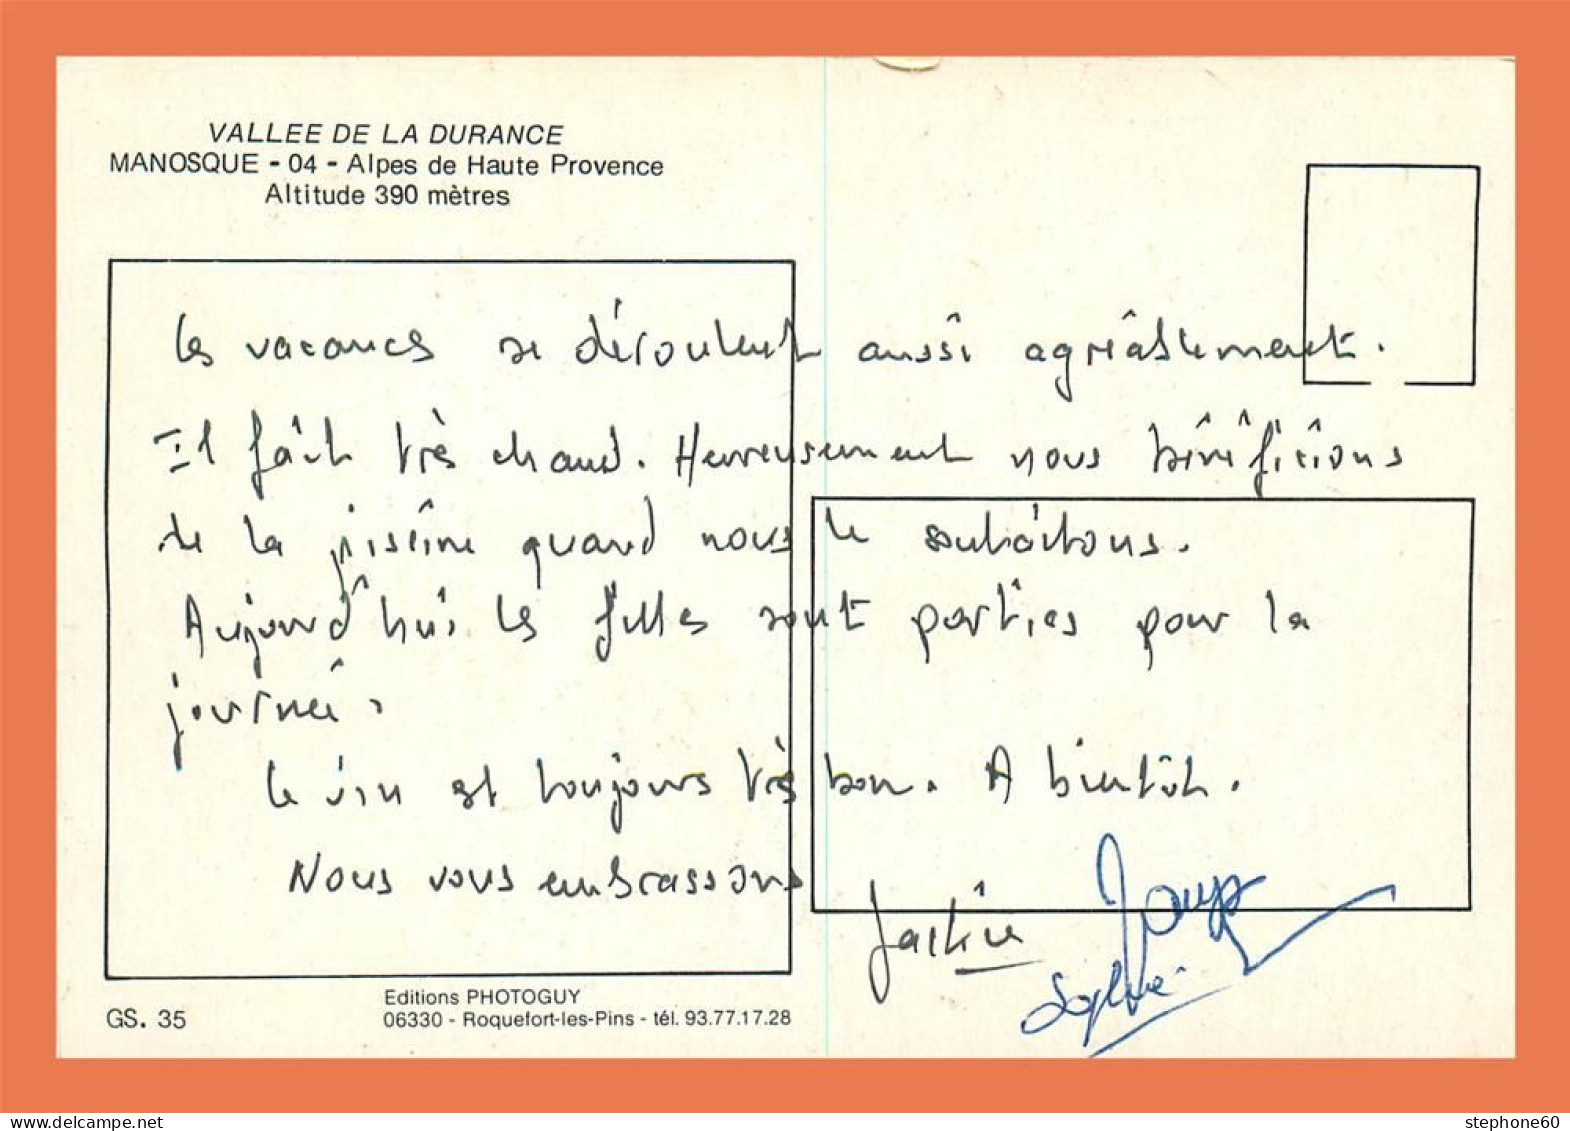 VALLEE DE LA DURANCE
MANOSQUE - 04 - Alpes de Haute Provence
Altitude 390 mètres
Les vacances se déroulent aussi agréablement.
Il fait très chaud. Heureusement nous bénéficions
de la piscine quand nous le souhaitons.
Aujourd'hui les filles sont parties pour la
journée.
Le vin est toujours très bon. A bientôt.
Nous vous embrassons
Jackie
Sophie
GS. 35
Editions PHOTOGUY
06330 - Roquefort-les-Pins - tél. 93.77.17.28
www.delcampe.net
stephone60